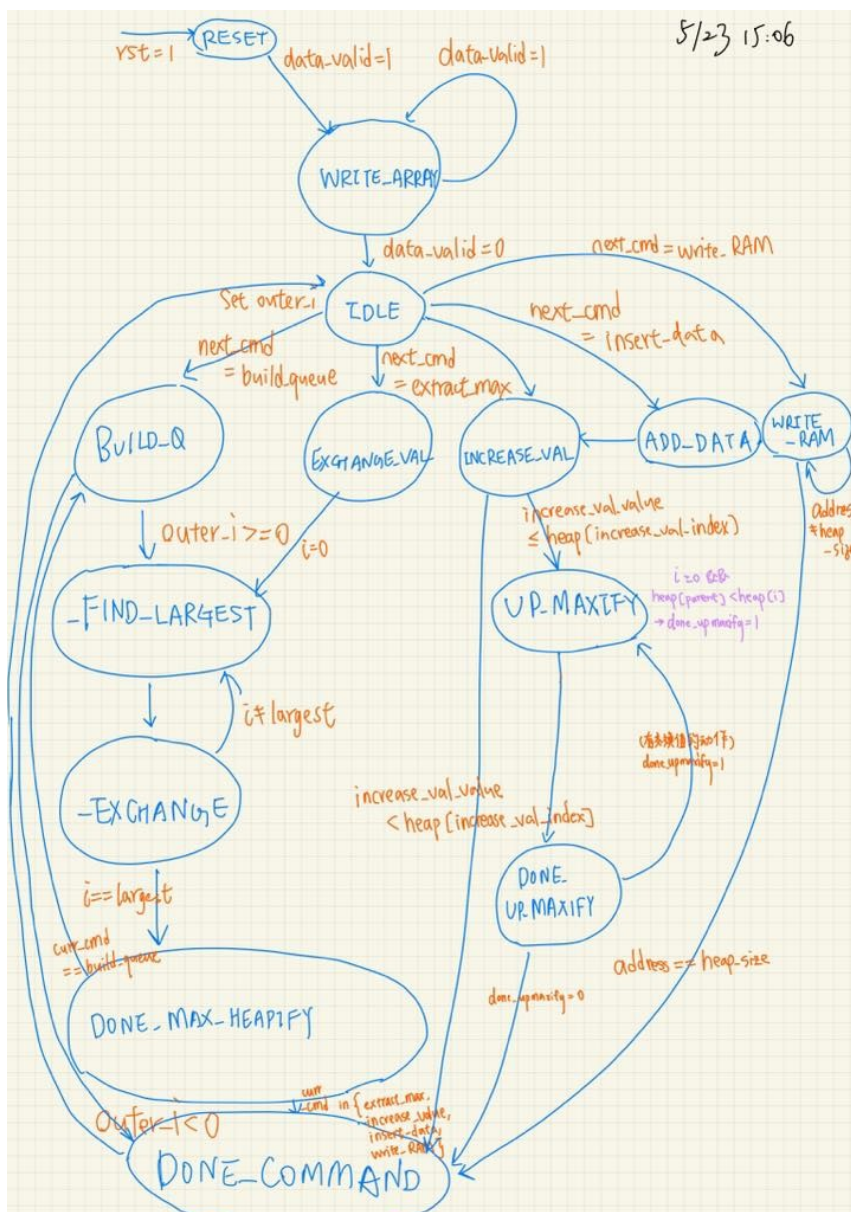 5/23 15:06
rst=1
RESET
data-valid=1
data-valid=1
WRITE_ARRAY
data_valid=0
next_cmd=write_RAM
Set outer_i
IDLE
next_cmd
= insert-data
next_cmd
= build_queue
next_cmd
= extract_max
BUILD_Q
EXCHANGE_VAL
INCREASE_VAL
ADD_DATA
WRITE
_RAM
outer_i>=0
i=0
increase_val_value
≤ heap[increase_val_index]
address
≠heap
_size
_FIND_LARGEST
UP_MAXIFY
heap[parent]<heap[i]
→done_upmaxify=1
i≠largest
done_upmaxify=1
_EXCHANGE
increase_val_value
< heap[increase_val_index]
i==largest
DONE_
UP_MAXIFY
curr_cmd
==build_queue
address == heap_size
done_upmaxify=0
DONE_MAX_HEAPIFY
curr
_cmd in {extract_max,
increase_value,
insert-data,
write_RAM}
outer_i<0
DONE_COMMAND